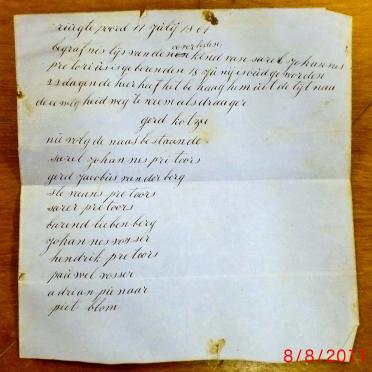 zuigte poord 11 julij 18 61
begraf nis lijs van den overleden kind van sarel johannes
pretorius is geboren den 15 juij is oud geworden
23 dagen de heer heeft het be haag hem uit de tijt naa
de ewig heid weg te neem als draager
gerd kotze
nu volg de naas bestaande
sarel johannes pritoors
gerd jacobus van der berg
stevaans pretoors
sarer pretoors
barend lieben berg
johannes vosser
hendrik pretoors
pauwel vosser
adrian pienaar
piet blom
8/8/2011